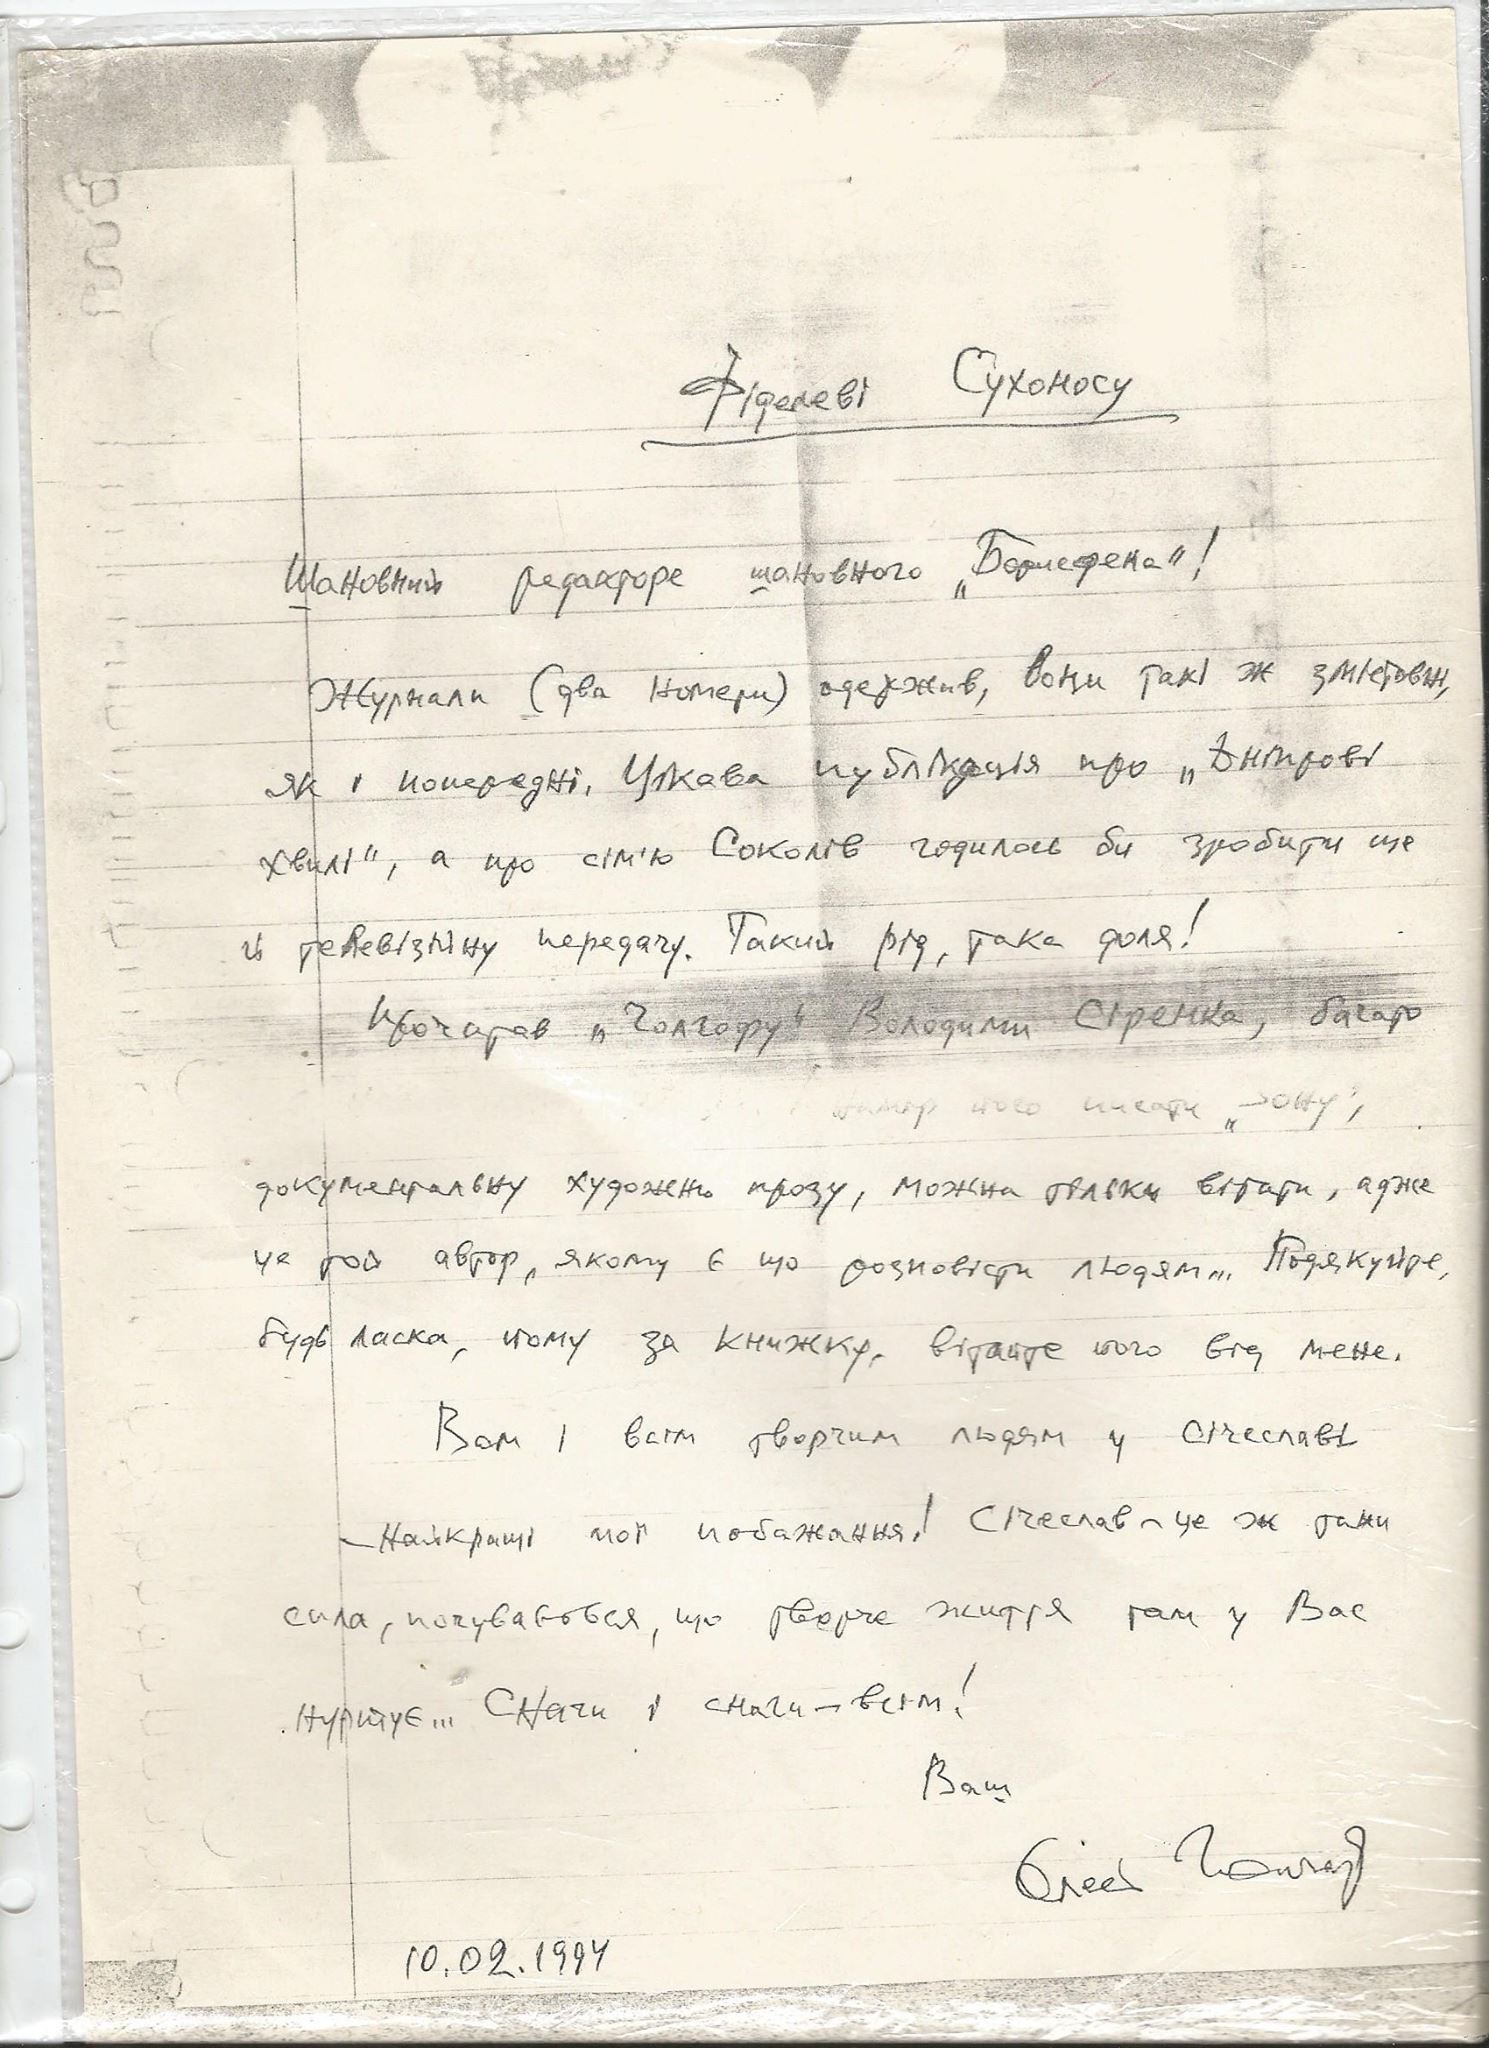 Фіделеві Сухоносу
Шановний редакторе шановного „Борисфена“!
Журнали (два номери) одержав, вони такі ж змістовні,
як і попередні. Цікава публікація про „Дніпрові
хвилі“, а про сім'ю Соколів годилось би зробити ще
й телевізійну передачу. Такий рід, така доля!
Прочитав „Голгофу“ Володими Сіренка, багато
намір його писати „Зону“,
документальну художню прозу, можна тільки вітати, адже
це той автор, якому є що розповісти людям... Подякуйте,
будь ласка, йому за книжку, вітайте його від мене.
Вам і всім творчим людям у Січеславі
– найкращі мої побажання! Січеслав – це ж таки
сила, почувається, що творче життя там у Вас
нуртує... Снаги і снаги – всім!
Ваш
Олесь Гончар
10.02.1994